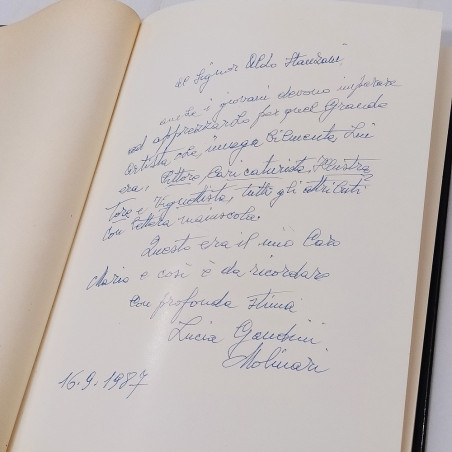 al Signor Aldo Stanzani,
anche i giovani devono imparare
ad apprezzarlo per quel Grande
Artista che, Lui
era, Pittore Caricaturista Illustra
tore e Vignettista, tutti gli attributi
con lettera maiuscola.
Questo era il mio Caro
Mario e così è da ricordare
con profonda stima
Lucia Gandini
Molinari
16.9.1987